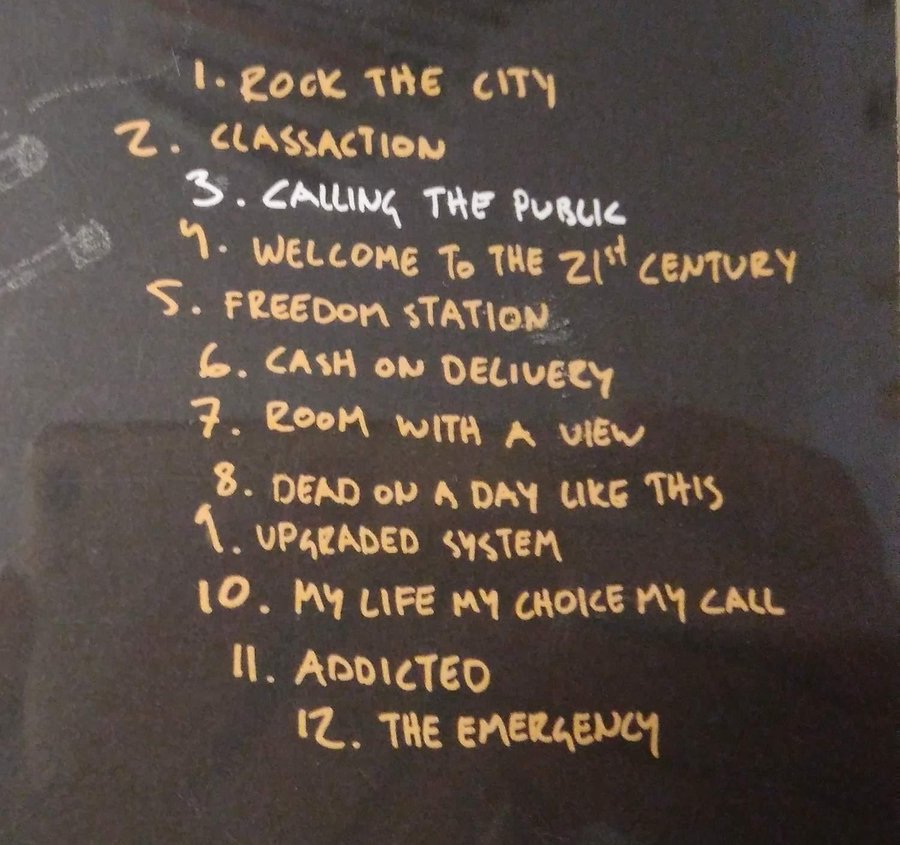 1. ROCK THE CITY
2. CLASSACTION
3. CALLING THE PUBLIC
4. WELCOME TO THE 21st CENTURY
5. FREEDOM STATION
6. CASH ON DELIVERY
7. ROOM WITH A VIEW
8. DEAD ON A DAY LIKE THIS
9. UPGRADED SYSTEM
10. MY LIFE MY CHOICE MY CALL
11. ADDICTED
12. THE EMERGENCY